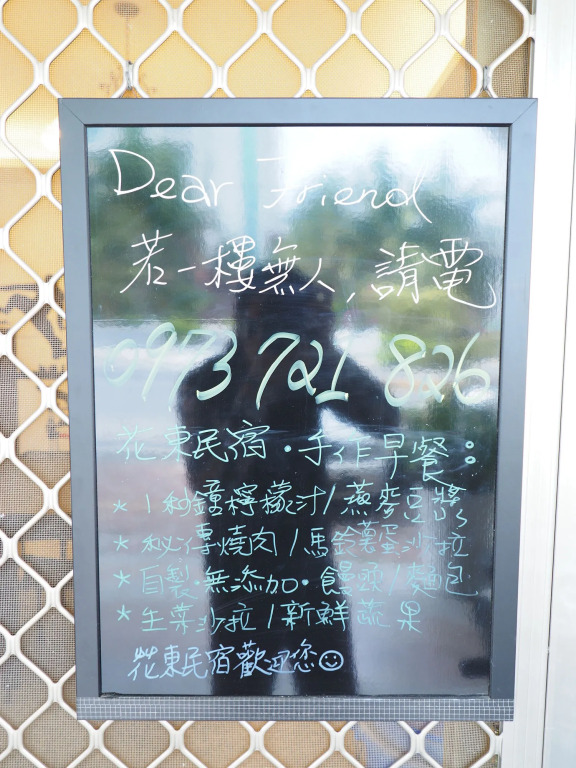 Dear Friend
若一樓無人,請電
0973 721 826
花東民宿·手作早餐:
* 1秒鐘檸檬汁/燕麥豆漿
* 秘傳燒肉/馬鈴薯蛋沙拉
* 自製·無添加·饅頭/麵包
* 生菜沙拉/新鮮蔬果
花東民宿歡迎您☺